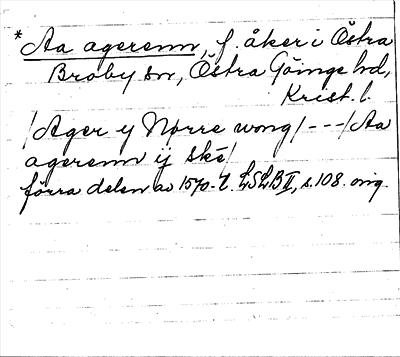 * Aa agerenn, f. åker i Östra
Broby sn, Östra Göinge hd,
Krist. l.
/Ager y Norre wong/ - - - /Aa
agerenn ij skē/
förra delen av 1570-t. LSLB II, s. 108. orig.